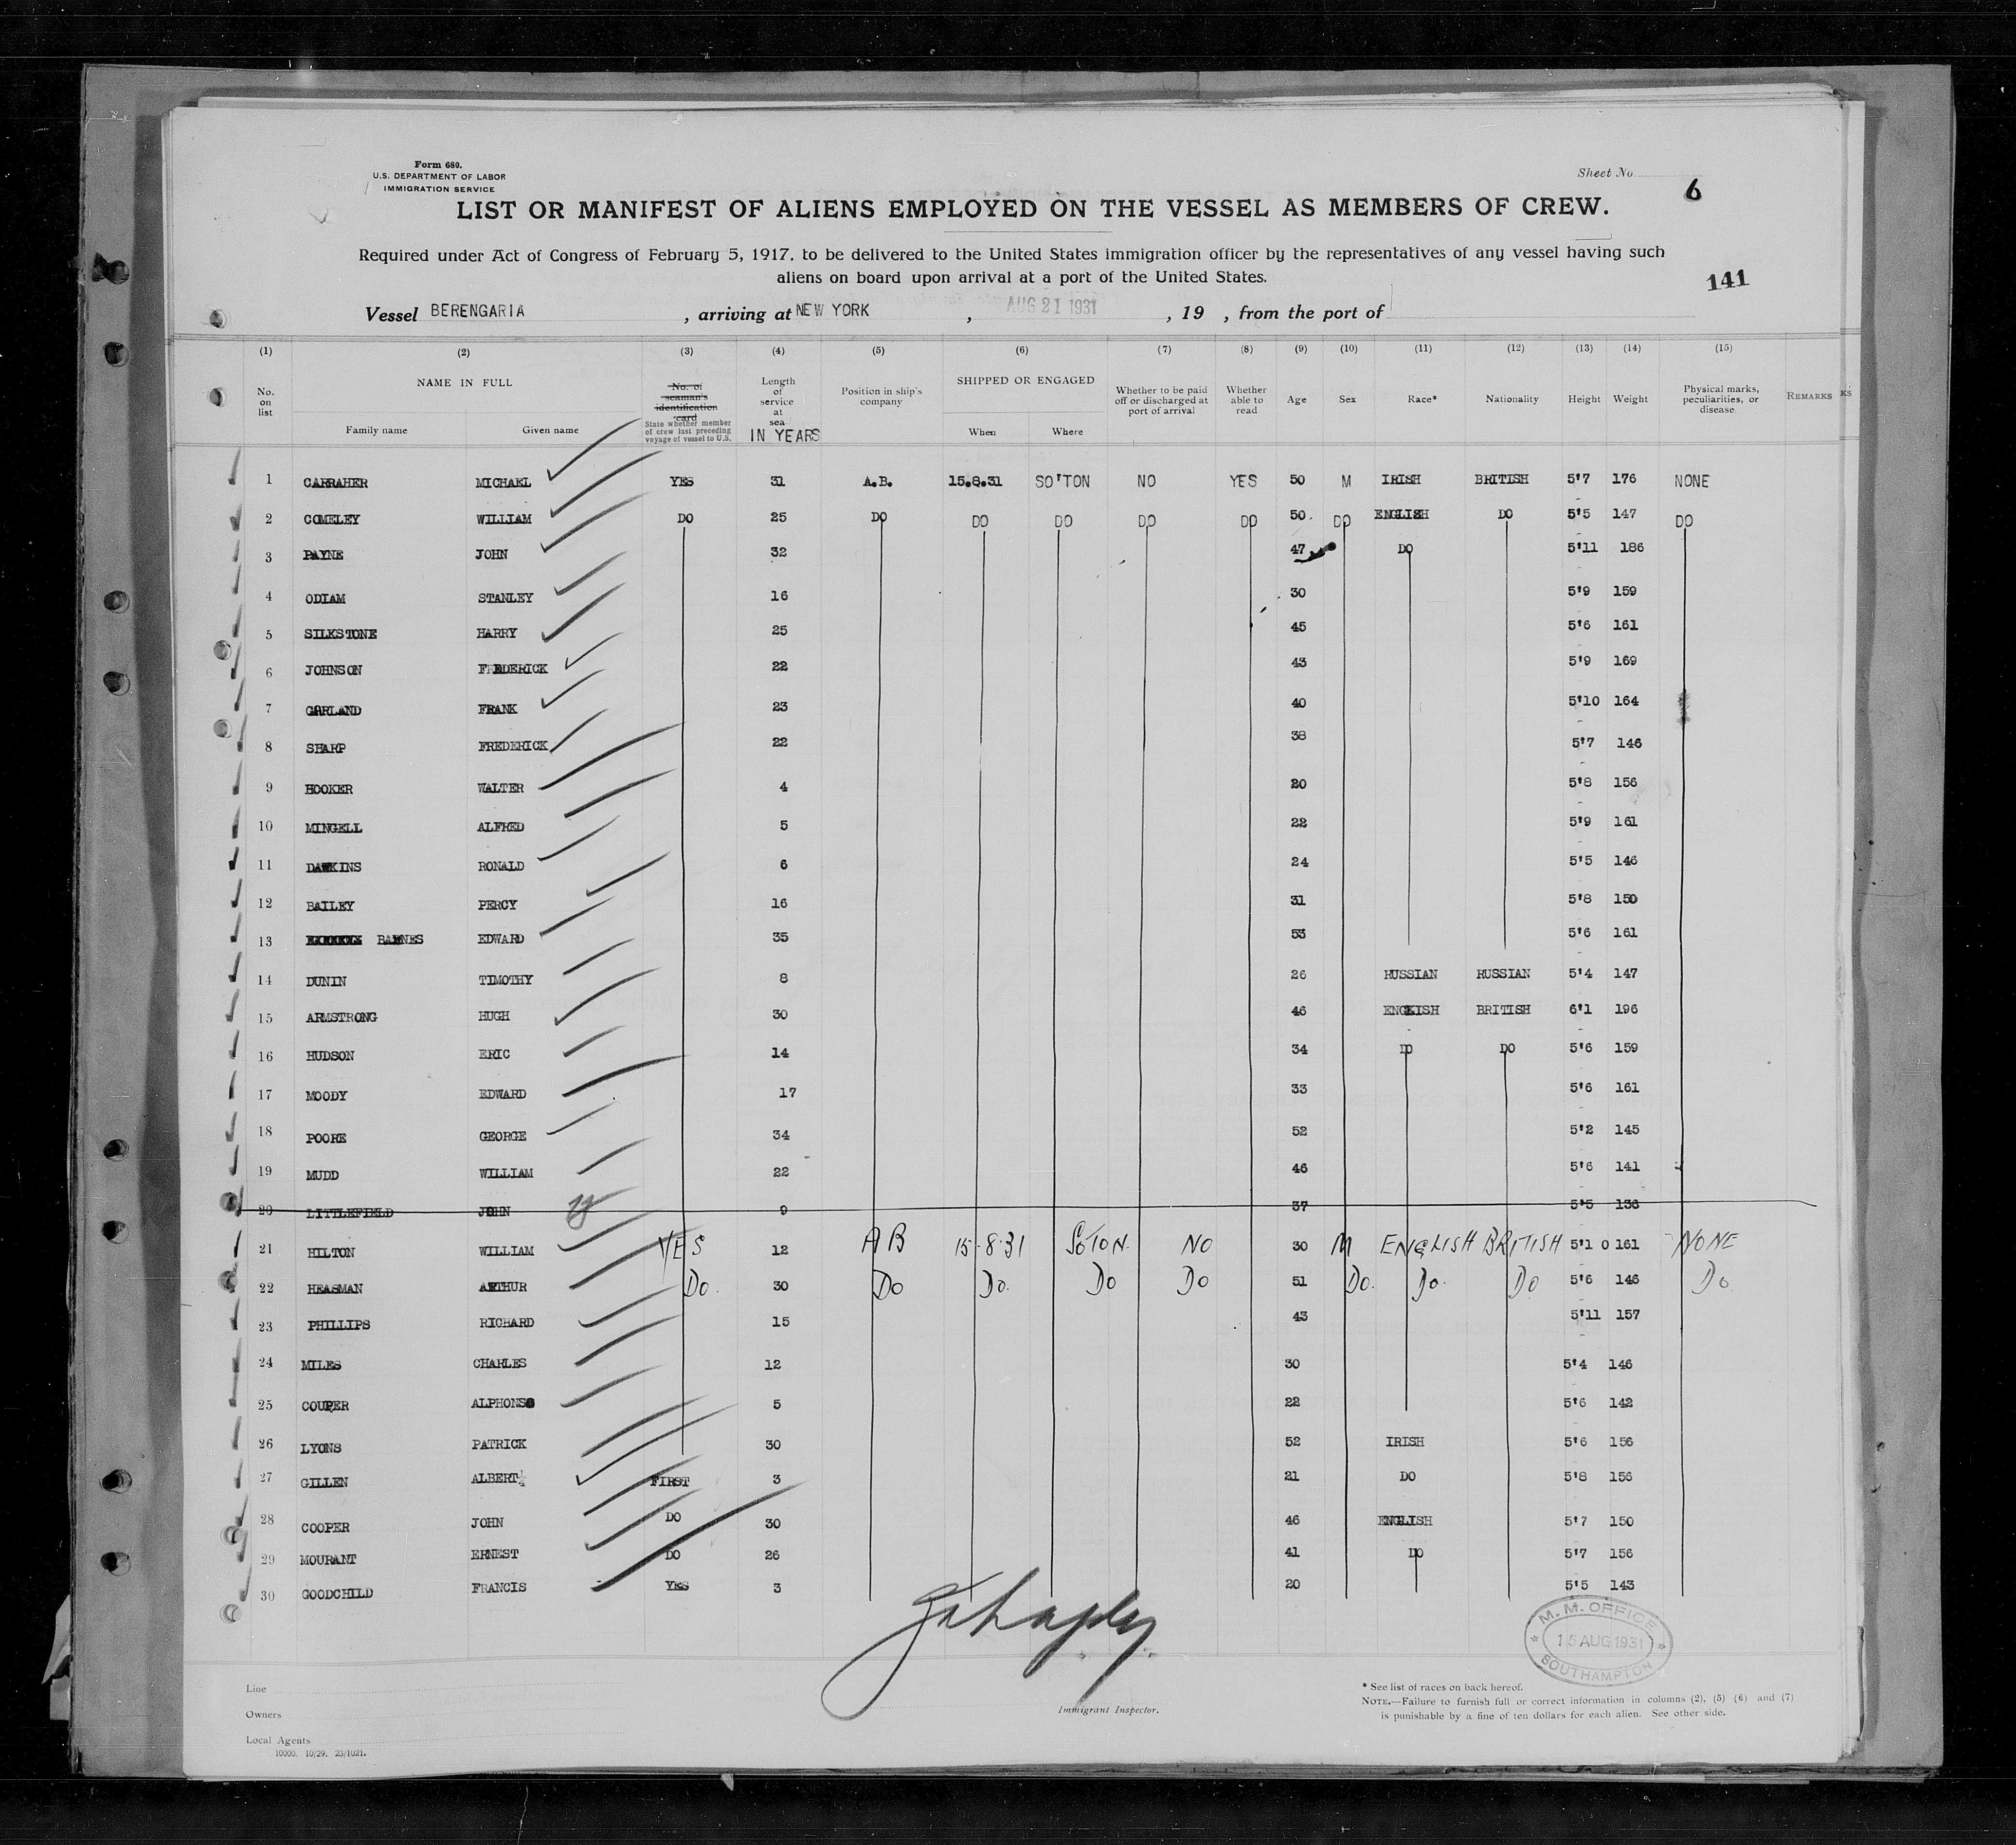 Form 680.
U.S. DEPARTMENT OF LABOR
IMMIGRATION SERVICE
Sheet No. 6
LIST OR MANIFEST OF ALIENS EMPLOYED ON THE VESSEL AS MEMBERS OF CREW.
Required under Act of Congress of February 5, 1917, to be delivered to the United States immigration officer by the representatives of any vessel having such
aliens on board upon arrival at a port of the United States.
141
Vessel BERENGARIA, arriving at NEW YORK, AUG 21 1931, 19 , from the port of
(1) (2) (3) (4) (5) (6) (7) (8) (9) (10) (11) (12) (13) (14) (15)
No. on list
NAME IN FULL
Family name Given name
No. of seaman's identification card
State whether member of crew last preceding voyage of vessel to U.S.
Length of service at sea IN YEARS
Position in ship's company
SHIPPED OR ENGAGED
When Where
Whether to be paid off or discharged at port of arrival
Whether able to read
Age Sex Race* Nationality Height Weight
Physical marks, peculiarities, or disease
REMARKS KS
1 CARRAHER MICHAEL YES 31 A.B. 15.8.31 SO'TON NO YES 50 M IRISH BRITISH 5'7 176 NONE
2 COMELEY WILLIAM DO 25 DO DO DO DO DO 50 DO ENGLISH DO 5'5 147 DO
3 PAYNE JOHN 32 47 DO 5'11 186
4 ODIAM STANLEY 16 30 5'9 159
5 SILKSTONE HARRY 25 45 5'6 161
6 JOHNSON FREDERICK 22 43 5'9 169
7 GARLAND FRANK 23 40 5'10 164
8 SHARP FREDERICK 22 38 5'7 146
9 HOOKER WALTER 4 20 5'8 156
10 MINGELL ALFRED 5 22 5'9 161
11 DAWKINS RONALD 6 24 5'5 146
12 BAILEY PERCY 16 31 5'8 150
13 BARNES EDWARD 35 53 5'6 161
14 DUNIN TIMOTHY 8 26 RUSSIAN RUSSIAN 5'4 147
15 ARMSTRONG HUGH 30 46 ENGKISH BRITISH 6'1 196
16 HUDSON ERIC 14 34 DO DO 5'6 159
17 MOODY EDWARD 17 33 5'6 161
18 POORE GEORGE 34 52 5'2 145
19 MUDD WILLIAM 22 46 5'6 141
20 LITTLEFIELD JOHN 9 37 5'5 136
21 HILTON WILLIAM YES 12 AB 15-8-31 SOTON. NO 30 M ENGLISH BRITISH 5'1 0 161 NONE
22 HEASMAN ARTHUR Do. 30 Do Do. Do Do 51 Do. Do. Do 5'6 146 Do
23 PHILLIPS RICHARD 15 43 5'11 157
24 MILES CHARLES 12 30 5'4 146
25 COUPER ALPHONSO 5 22 5'6 142
26 LYONS PATRICK 30 52 IRISH 5'6 156
27 GILLEN ALBERT FIRST 3 21 DO 5'8 156
28 COOPER JOHN DO 30 46 ENGLISH 5'7 150
29 MOURANT ERNEST DO 26 41 DO 5'7 156
30 GOODCHILD FRANCIS YES 3 20 5'5 143
M. M. OFFICE
15 AUG 1931
SOUTHAMPTON
Line
Owners
Local Agents
10000. 10/29. 23/1021.
Immigrant Inspector.
* See list of races on back hereof.
NOTE.—Failure to furnish full or correct information in columns (2), (5) (6) and (7)
is punishable by a fine of ten dollars for each alien. See other side.